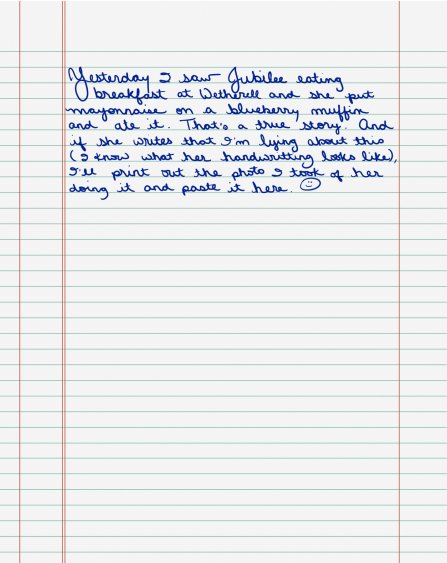 Yesterday I saw Jubilee eating
breakfast at Wetherell and she put
mayonnaise on a blueberry muffin
and ate it. That's a true story. And
if she writes that I'm lying about this
(I know what her handwritting looks like),
I'll print out the photo I took of her
doing it and paste it here. ☺